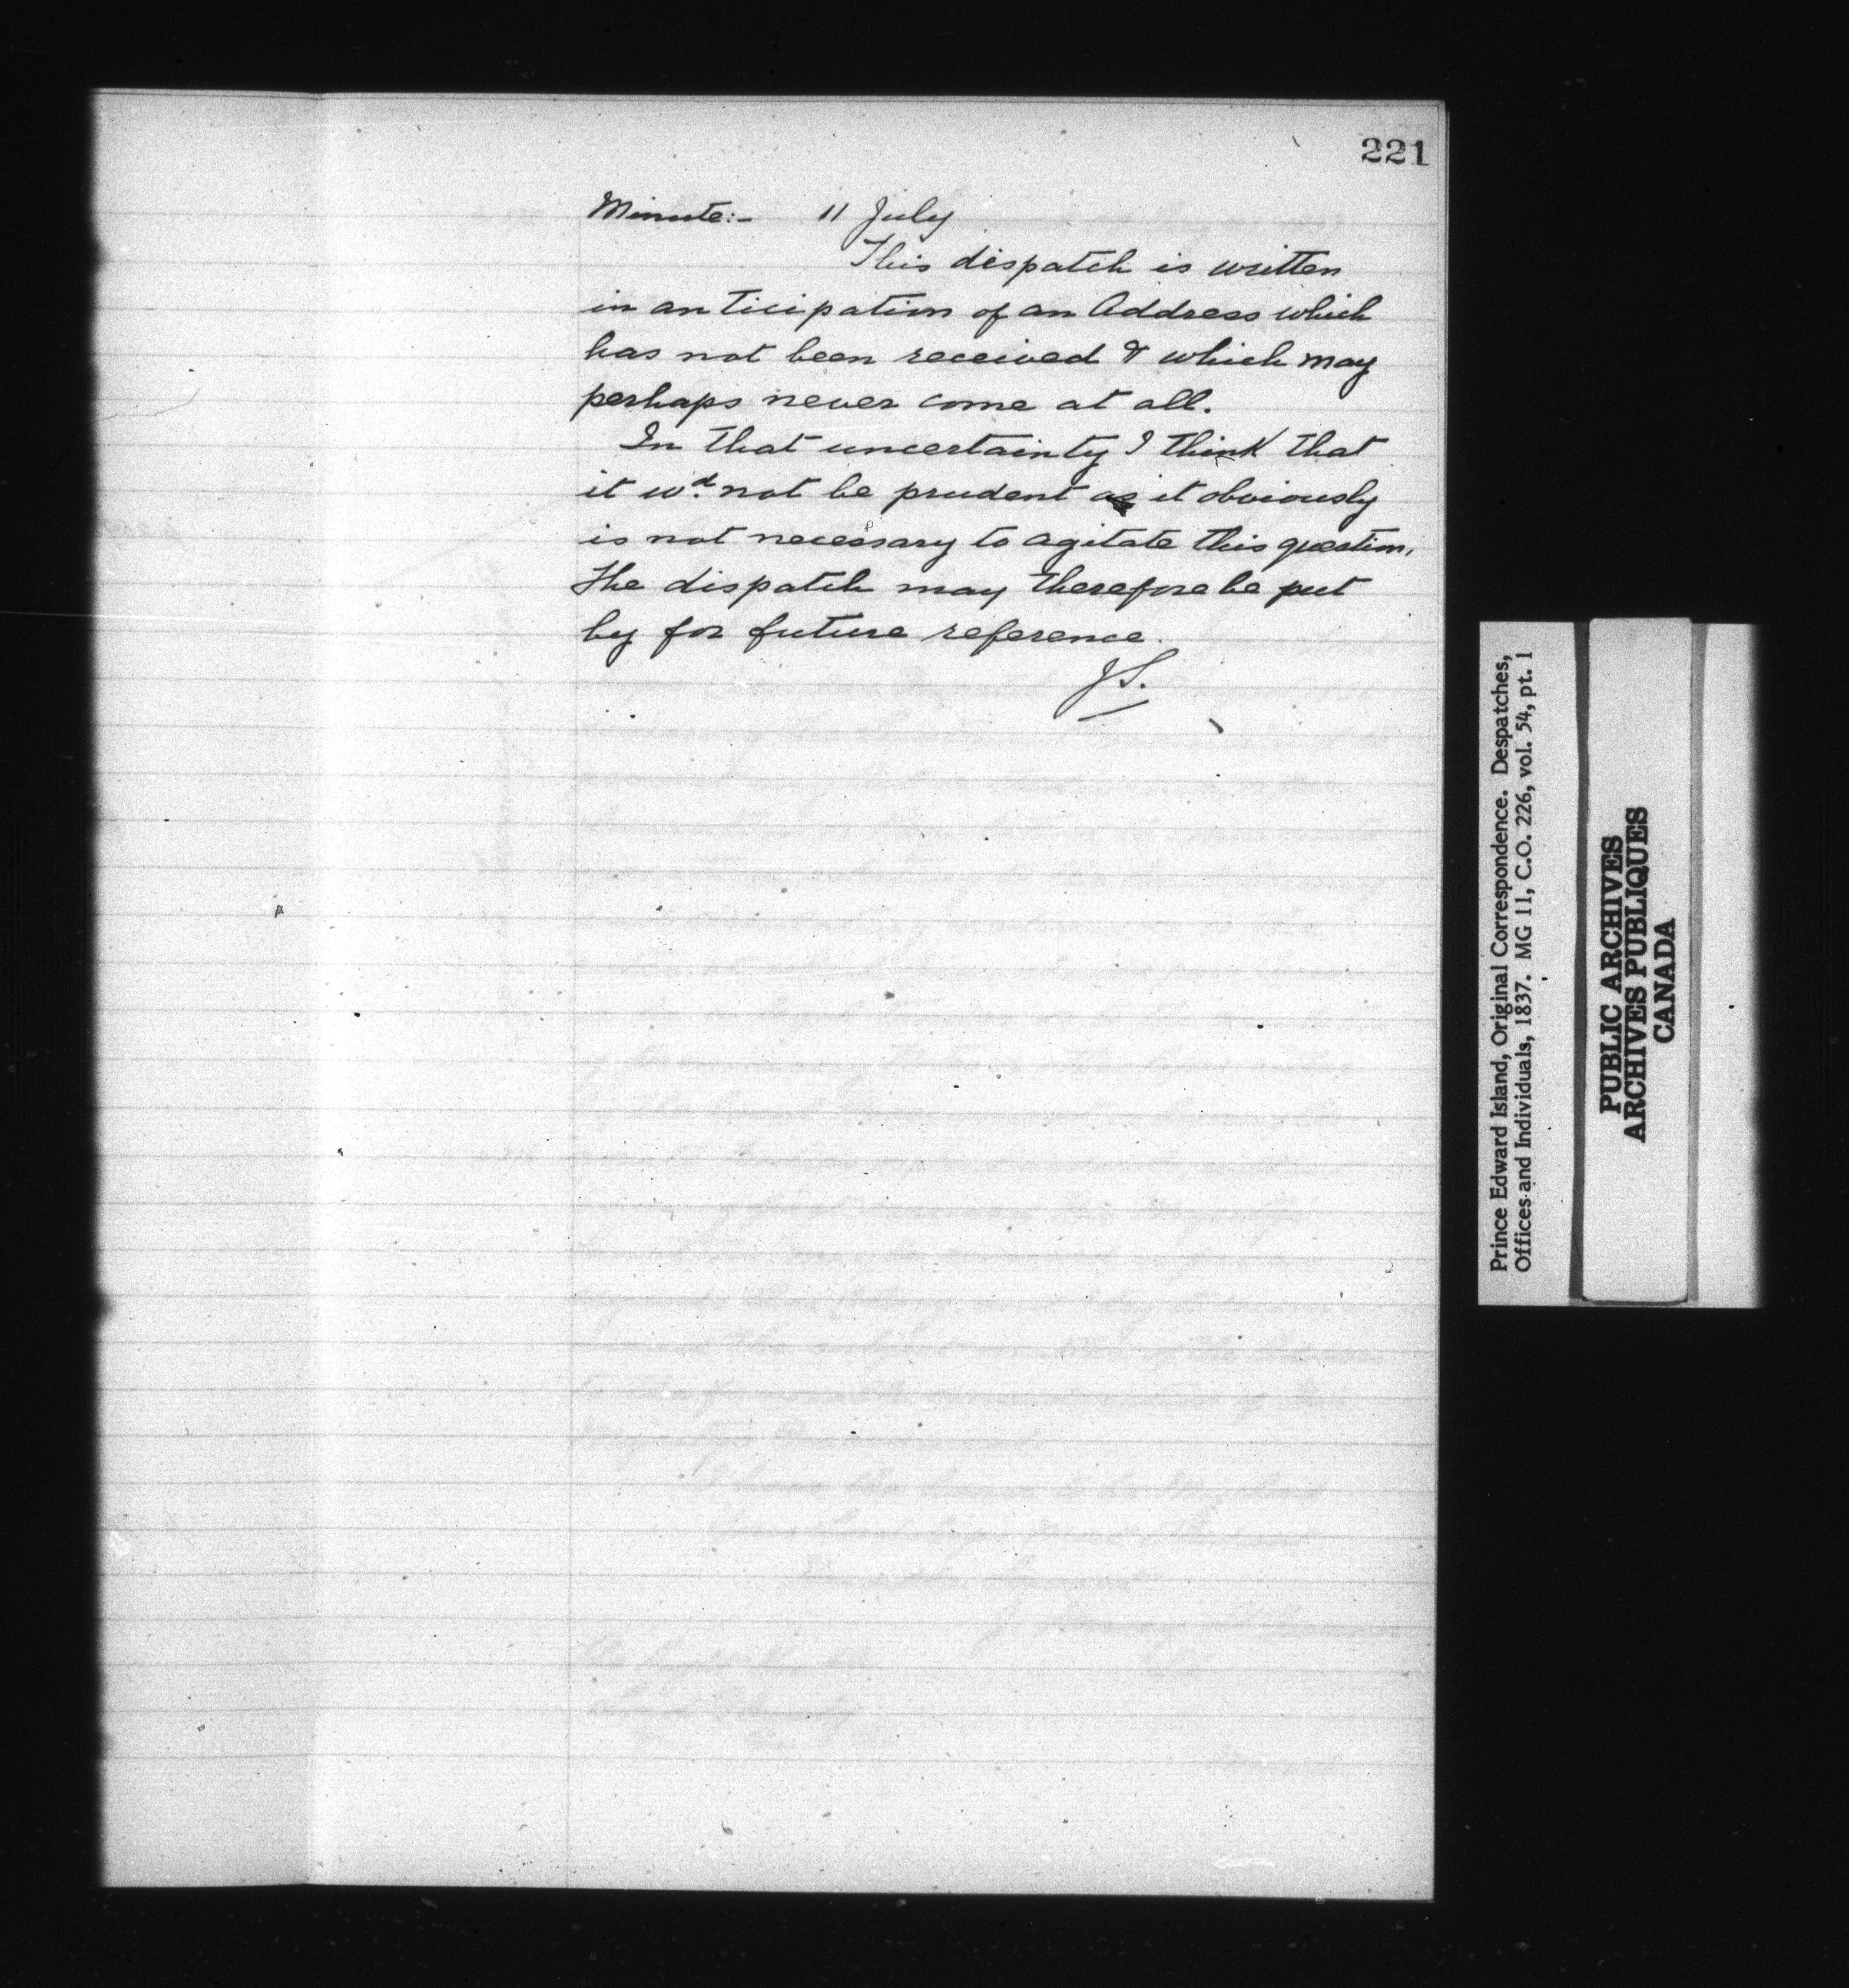 221
Minute:- 11 July
This dispatch is written
in anticipation of an Address which
has not been received & which may
perhaps never come at all.
In that uncertainty I think that
it wd. not be prudent as it obviously
is not necessary to agitate this question.
The dispatch may therefore be put
by for future reference.
JS.
Prince Edward Island, Original Correspondence. Despatches,
Offices and Individuals, 1837. MG 11, C.O. 226, vol. 54, pt. 1
PUBLIC ARCHIVES
ARCHIVES PUBLIQUES
CANADA